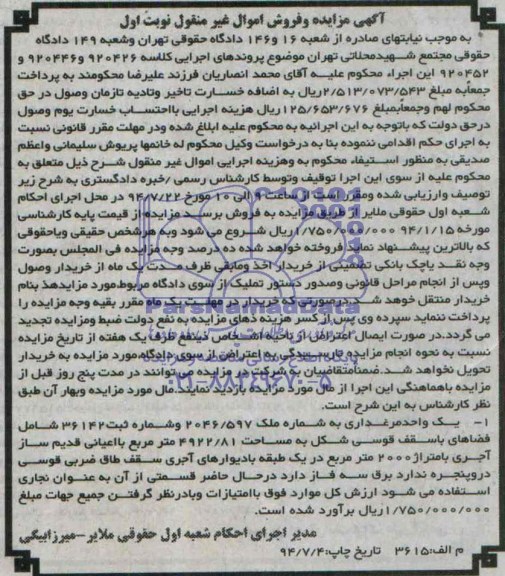 آگهی مزایده وفروش اموال غیر منقول نوبت اول
به موجب نیابتهای صادره از شعبه ۱۶ و۱۴۶ دادگاه حقوقی تهران وشعبه ۱۴۹ دادگاه
حقوقی مجتمع شهیدمحلاتی تهران موضوع پروندهای اجرایی کلاسه ۹۲۰۴۲۶ و۹۲۰۴۴۶ و
۹۲۰۴۵۲ این اجراء محکوم علیه آقای محمد انصاریان فرزند علیرضا محکومند به پرداخت
جمعآبه مبلغ ۲/۵۱۳/۰۷۳/۵۴۳ریال به اضافه خسارت تاخیر وتادیه تازمان وصول در حق
محکوم لهم وجمعآبمبلغ ۱۲۵/۶۵۳/۶۷۶ریال هزینه اجرایی بااحتساب خسارت یوم وصول
درحق دولت که باتوجه به این اجرائیه به محکوم علیه ابلاغ شده ودر مهلت مقرر قانونی نسبت
به اجرای حکم اقدامی ننموده بنا به درخواست وکیل محکوم له خانمها پریوش سلیمانی واعظم
صدیقی به منظور استیفاء محکوم به وهزینه اجرایی اموال غیر منقول شرح ذیل متعلق به
محکوم علیه از سوی این اجرا توقیف وتوسط کارشناس رسمی /خبره دادگستری به شرح زیر
توصیف وارزیابی شده ومقرر است از ساعت ۹ الی ۱۰ مورخ ۹۴/۷/۲۲ در محل اجرای احکام
شعبه اول حقوقی ملایر از طریق مزایده به فروش برسد مزایده از قیمت پایه کارشناسی
مورخه ۹۴/۱/۱۵ ۱/۷۵۰/۰۰۰/۰۰۰ریال شروع می شود وبه هرشخص حقیقی ویاحقوقی
که بالاترین پیشنهاد نماید فروخته خواهد شد ده درصد وجه مزایده فی المجلس بصورت
وجه نقد یاچک بانکی تضمینی از خریدار اخذ ومابقی ظرف مدت یک ماه از خریدار وصول
وپس از انجام مراحل قانونی وصدور دستور تملیک از سوی دادگاه مربوط،مورد مزایدهذ بنام
خریدار منتقل خوهد شد.درصورتی که خریدار در مهلت یک ماه مقرر بقیه وجه مزایده را
پرداخت ننماید سپرده وی پس از کسر هزینه دهای مزایده به نفع دولت ضبط ومزایده تجدید
می گردد.در صورت ایصال اعتراض از ناحیه اشخاص ذینفع ظرف یک هفته از تاریخ مزایده
نسبت به نحوه انجام مزایده تارسیدگی به اعتراض از سوی دادگاه،مورد مزایده به خریدار
تحویل نخواهد شد.ضمنآمتقاضیان به شرکت در مزایده می توانند در مدت پنج روز قبل از
مزایده باهماهنگی این اجرا از مال مورد مزایده بازدید نمایند.مال مورد مزایده وبهار آن طبق
نظر کارشناس به این شرح است.
۱- یک واحدمرغداری به شماره ملک ۲۰۴۶/۵۹۷ وشماره ثبت۳۶۱۴۲ شامل
فضاهای باسقف قوسی شکل به مساحت ۴۹۲۲/۸۱ متر مربع بااعیانی قدیم ساز
آجری بامتراژ ۲۰۰۰ متر مربع در یک طبقه بادیوارهای آجری سقف طاق ضربی قوسی
دروپنجره ندارد برق سه فاز دارد درحال حاضر قسمتی از آن به عنوان نجاری
استفاده می شود ارزش کل موارد فوق باامتیازات وبادرنظر گرفتن جمیع جهات مبلغ
۱/۷۵۰/۰۰۰/۰۰۰ریال برآورد شده است.
مدیر اجرای احکام شعبه اول حقوقی ملایر-میرزابیگی
م الف:۳۶۱۵ تاریخ چاپ:۹۴/۷/۴
ParsNamadData
۰۲۱-۸۸۳۴۹۶۷۰-۵